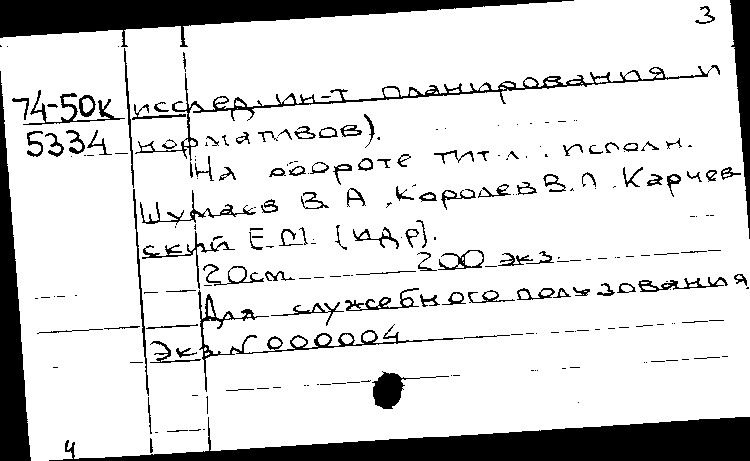 3
74-50к исслед. ин-т планирования и
5334 нормативов).
На обороте тит. л.: исполн.
Шумаев В.А., Королев В.П., Карчев-
ский Е.М. [и др].
20 см. 200 экз.
Для служебного пользования
Экз. N 000004
4